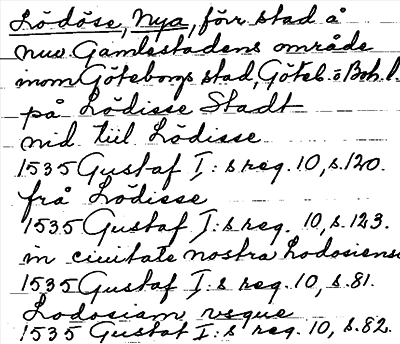 Lödöse, Nya, förr stad å
nuv Gamlestadens område
inom Göteborgs stad, Göteb. o Boh. l.
på Lödisse Stadt
nid tiil Lödisse
1535 Gustaf I:s reg. 10, s. 120.
frå Lödisse
1535 Gustaf I:s reg. 10, s. 123.
in ciuitate nostra Lodosiens
1535 Gustaf I:s reg. 10, s. 81.
Lodosiam vsque
1535 Gustaf I:s reg. 10, s. 82.